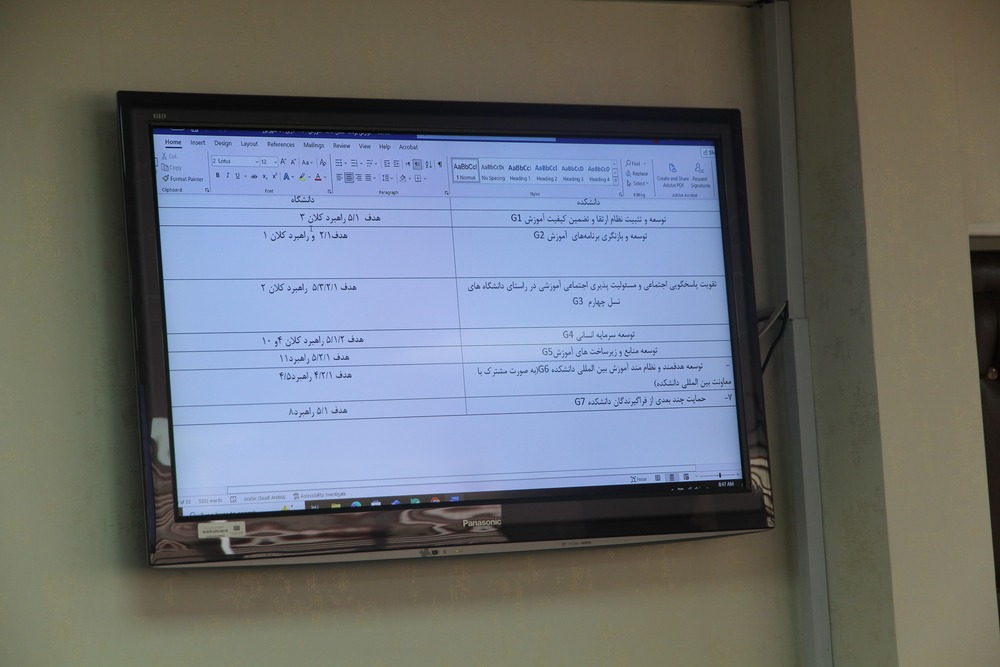 Home Insert Design Layout References Mailings Review View Help Acrobat
Cut
Copy
Format Painter
Clipboard
2 Lotus 12
Font
Paragraph
AaBbCcI AaBbCcDc AaBbCc AaBbCcI AaBbCcD AaBbCcD
1 Normal No Spacing Heading 1 Heading 2 Heading 3 Heading 4
Styles
Find
Replace
Select
Create and Share Adobe PDF
Request Signatures
Adobe Acrobat
دانشکده دانشگاه
توسعه و تثبیت نظام ارتقا و تضمین کیفیت آموزش G1 هدف ۵/۱ راهبرد کلان ۳
توسعه و بازنگری برنامه‌های آموزش G2 هدف۲/۱ و راهبرد کلان ۱
تقویت پاسخگویی اجتماعی و مسئولیت پذیری اجتماعی آموزشی در راستای دانشگاه های هدف ۵/۳/۲/۱ راهبرد کلان ۲
نسل چهارم G3
توسعه سرمایه انسانی G4 هدف ۵/۱/۲ راهبرد کلان ۴و ۱۰
توسعه منابع و زیرساخت های آموزشG5 هدف ۵/۲/۱ راهبرد۱۱
- توسعه هدفمند و نظام مند آموزش بین المللی دانشکده G6(به صورت مشترک با هدف ۴/۲/۱ راهبرد۴/۵
معاونت بین المللی دانشکده)
۷- حمایت چند بعدی از فراگیرندگان دانشکده G7 هدف ۵/۱ راهبرد۸
words Arabic (Saudi Arabia) Accessibility: Investigate
Focus
8:47 AM
Panasonic